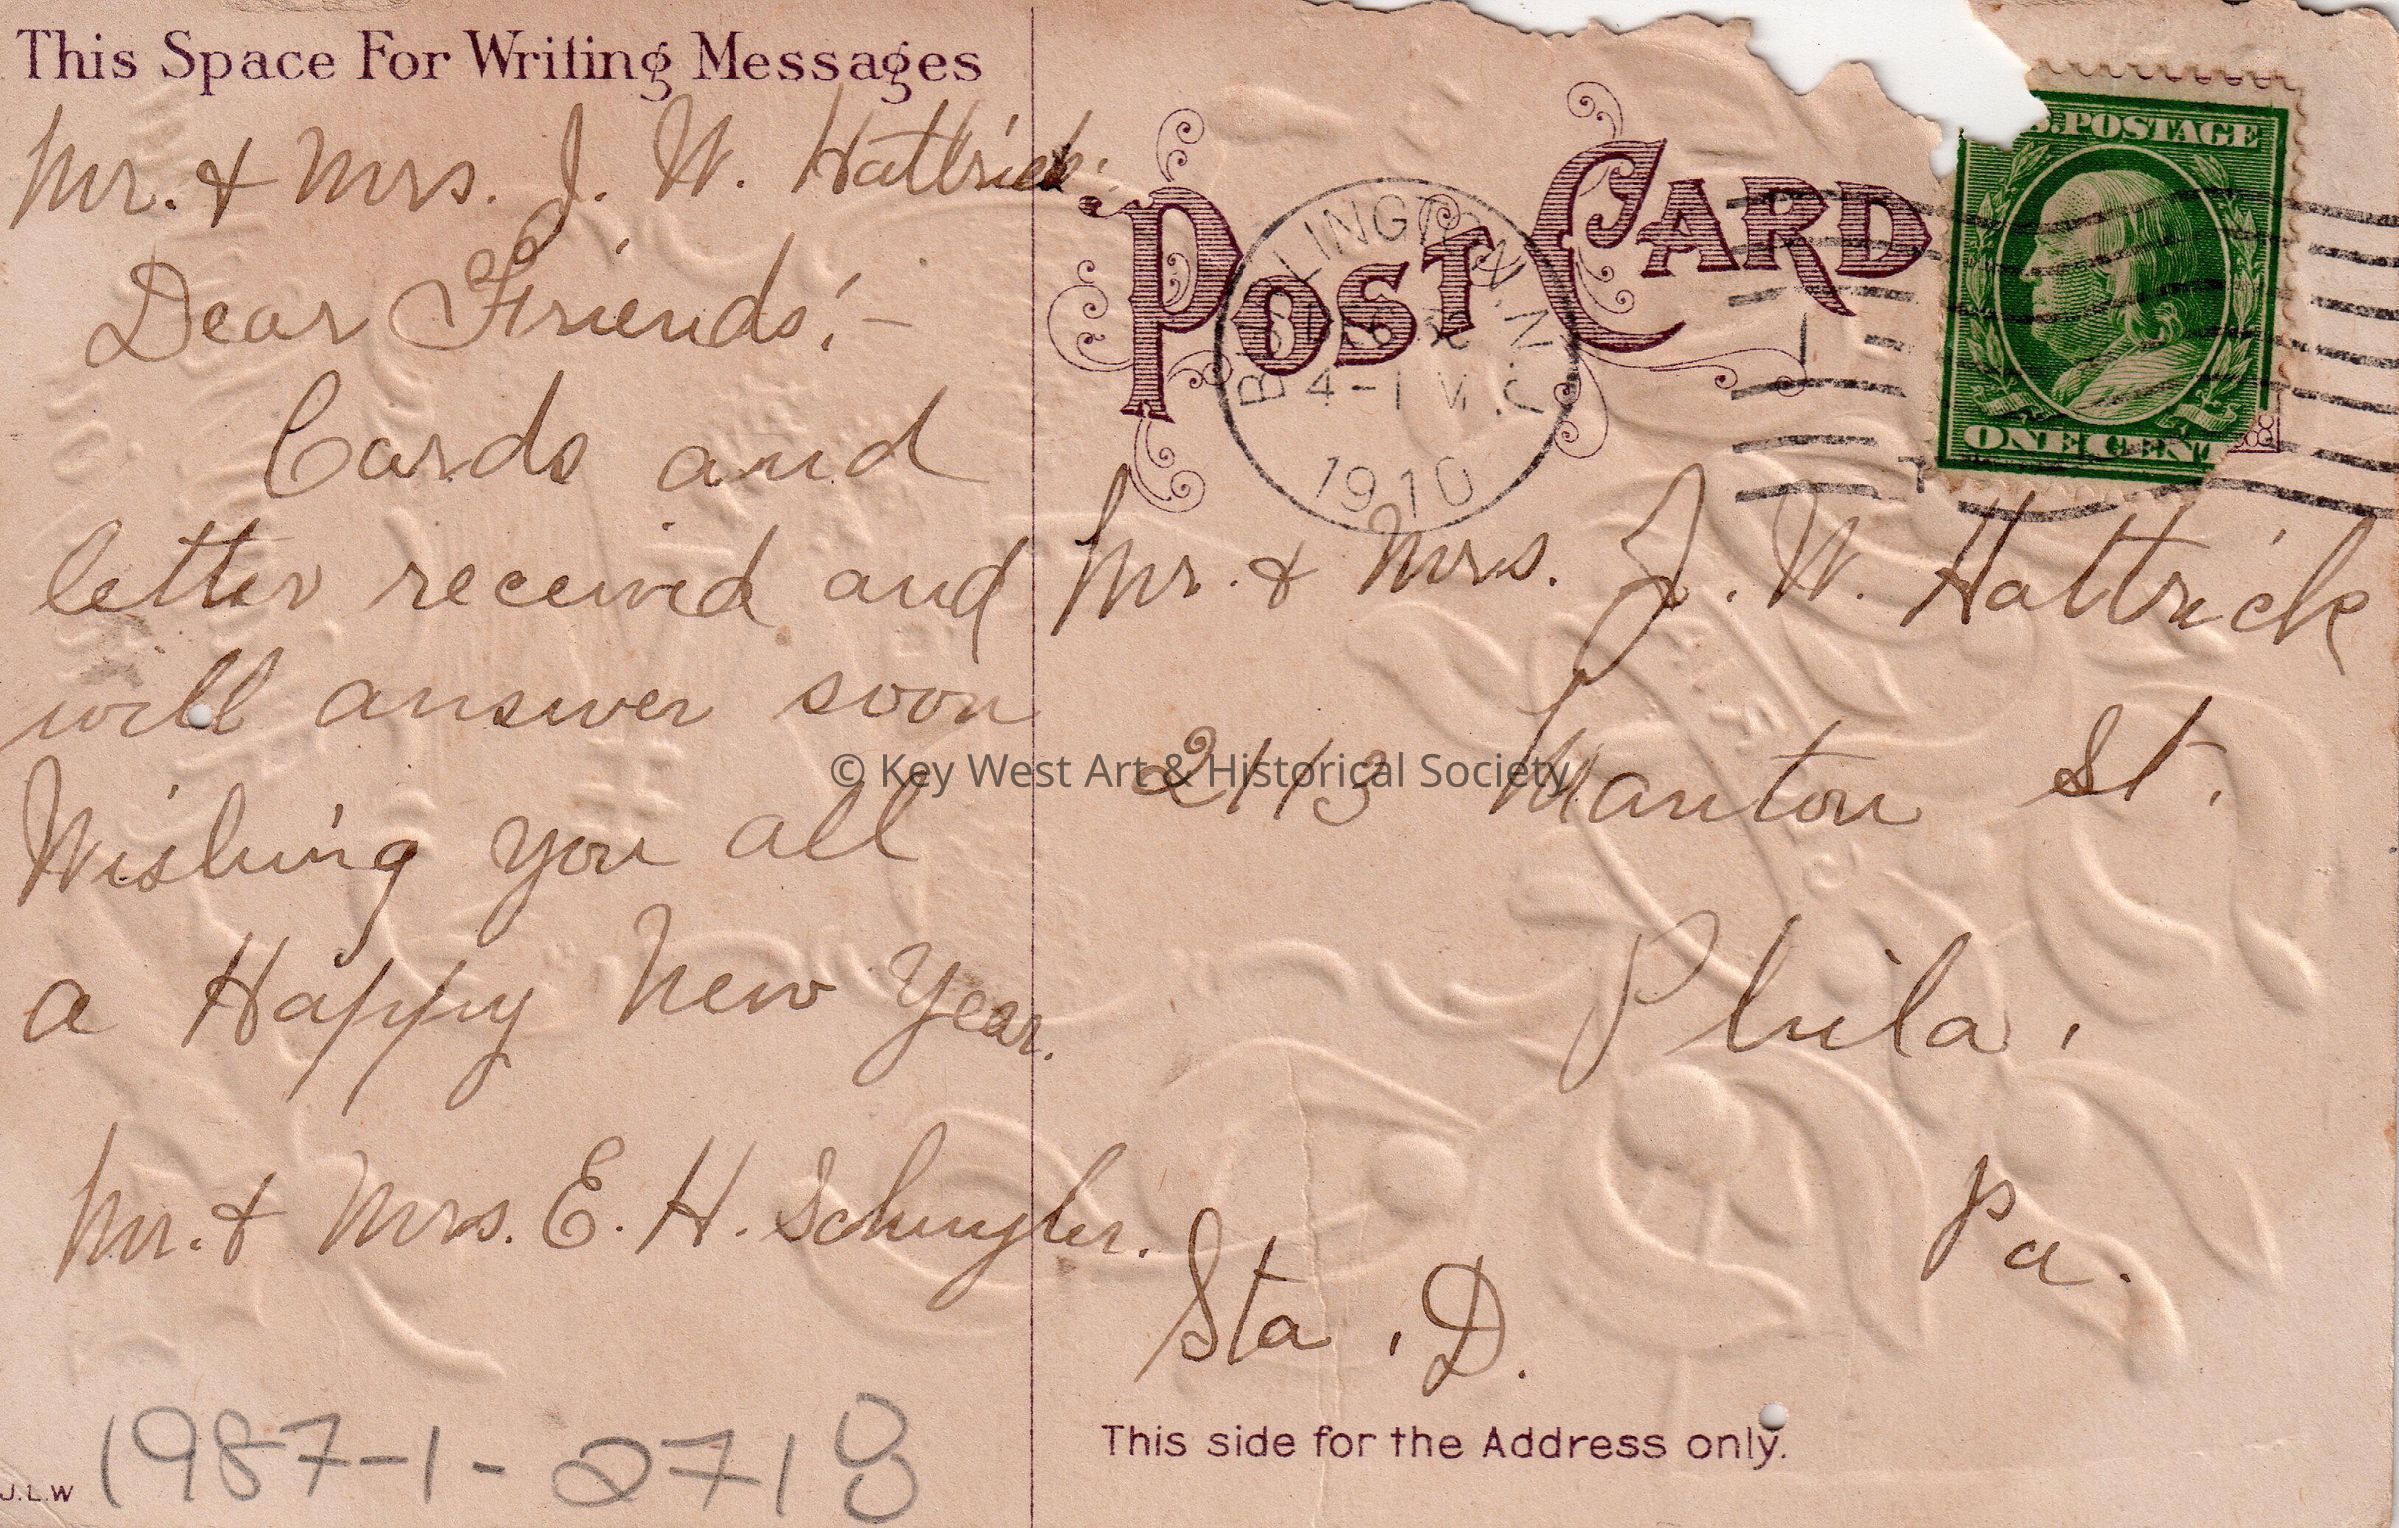 This Space For Writing Messages
Mr. & Mrs. J. W. Hattrick.
Dear Friends:-
Cards and
letter received and
will answer soon
Wishing you all
a Happy New Year.
Mr. & Mrs. E. H. Schuyler.
1987-1-2718
J.L.W
POST CARD
BURLINGTON, N.J.
4-
1910
U.S. POSTAGE
ONE CENT
Mr. & Mrs. J. W. Hattrick
2113 Manton St.
Phila.
Pa.
Sta. D.
This side for the Address only.
© Key West Art & Historical Society